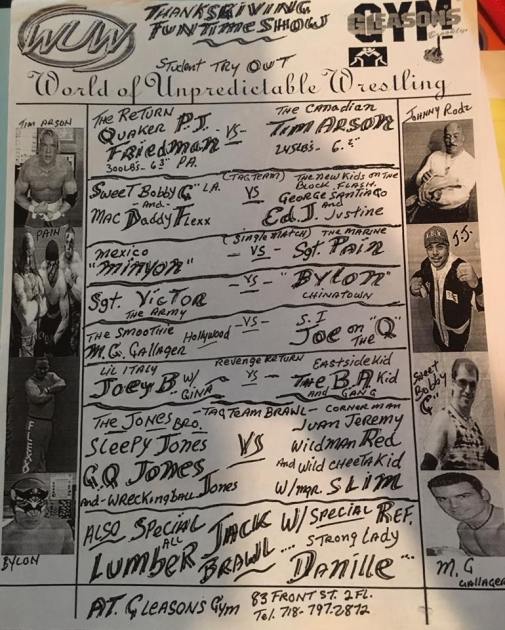 WUW
THANKSGIVING
FUNTIME SHOW
GLEASON'S
GYM
Brooklyn
Student Try OUT
World of Unpredictable Wrestling
TIM ARSON
JOHNNY Rodz
THE RETURN
QUAKER P.J.
Friedman
300LBS - 6.3" PA.
-VS-
THE Canadian
TIM ARSON
245LBS - 6.3"
Sweet Bobby "G" L.A.
-and-
MAC Daddy Flexx
(TAG TEAM)
VS
THE NEW KIDS ON THE
BLOCK. FLASH.
GEORGE SANTIAGO
and
Ed. J. Justine
PAIN
J.J.
Mexico
"MINYON"
(Single MATCH)
-VS-
THE MARINE
Sgt. PAIN
Sgt. VICTOR
THE ARMY
-VS-
"BYLON"
CHINATOWN
THE SMOOTHIE
M.G. GALLAGER
Hollywood
-VS-
S.I
Joe on THE "Q"
Lil ITALY
Joey B W/ GINA
Revenge RETURN
-VS-
EASTSIDE Kid
THE B.A. Kid
AND GANG
FLEXX
Sweet
Bobby
"G"
THE JONES BRO.
Sleepy Jones
G.Q JONES
And-WReckingBALL Jones
-TAG TEAM BRAWL-
VS
CORNER MAN
Juan Jeremy
Wildman Red
And Wild CHEETA Kid
W/mgr. SLIM
BYLON
M.G
GALLAGER
ALSO Special
ALL
LumBER JACK
BRAWL ....
W/ Special REF.
STRONG LADY
Danille"...
AT. GLEASONS Gym
83 FRONT ST. 2FL.
Tel. 718-797-2872